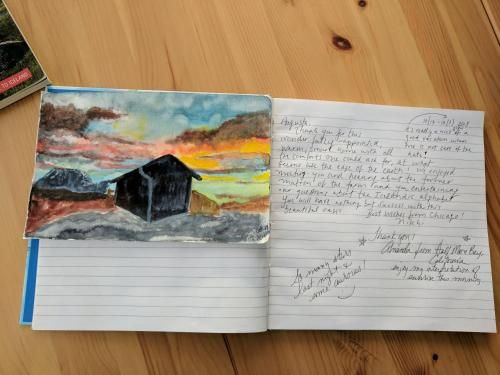 TO ICELAND
Augusta,
Thank you for this
wonderfully appointed,
warm, smart home with all
the comforts one could ask for, at what
seems like the edge of the earth! We enjoyed
meeting you and hearing about the fortunes
of the farm (and you entertaining
our questions about the Icelandic alphabet
You will have nothing but success with this
beautiful oasis. Best wishes from Chicago!
it's really a nice
good vacation
This is not one of the
Thank you!
Amanda from Half Moon Bay,
California
enjoy my interpretation of
sunrise this morning
So many stars
last night &
some auroras!